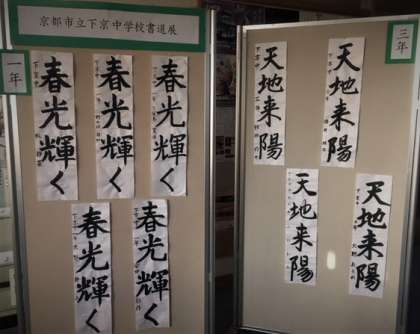 京都市立下京中学校書道展
一年
春光輝く
春光輝く
春光輝く
春光輝く
春光輝く
三年
天地来陽
天地来陽
天地来陽
天地来陽